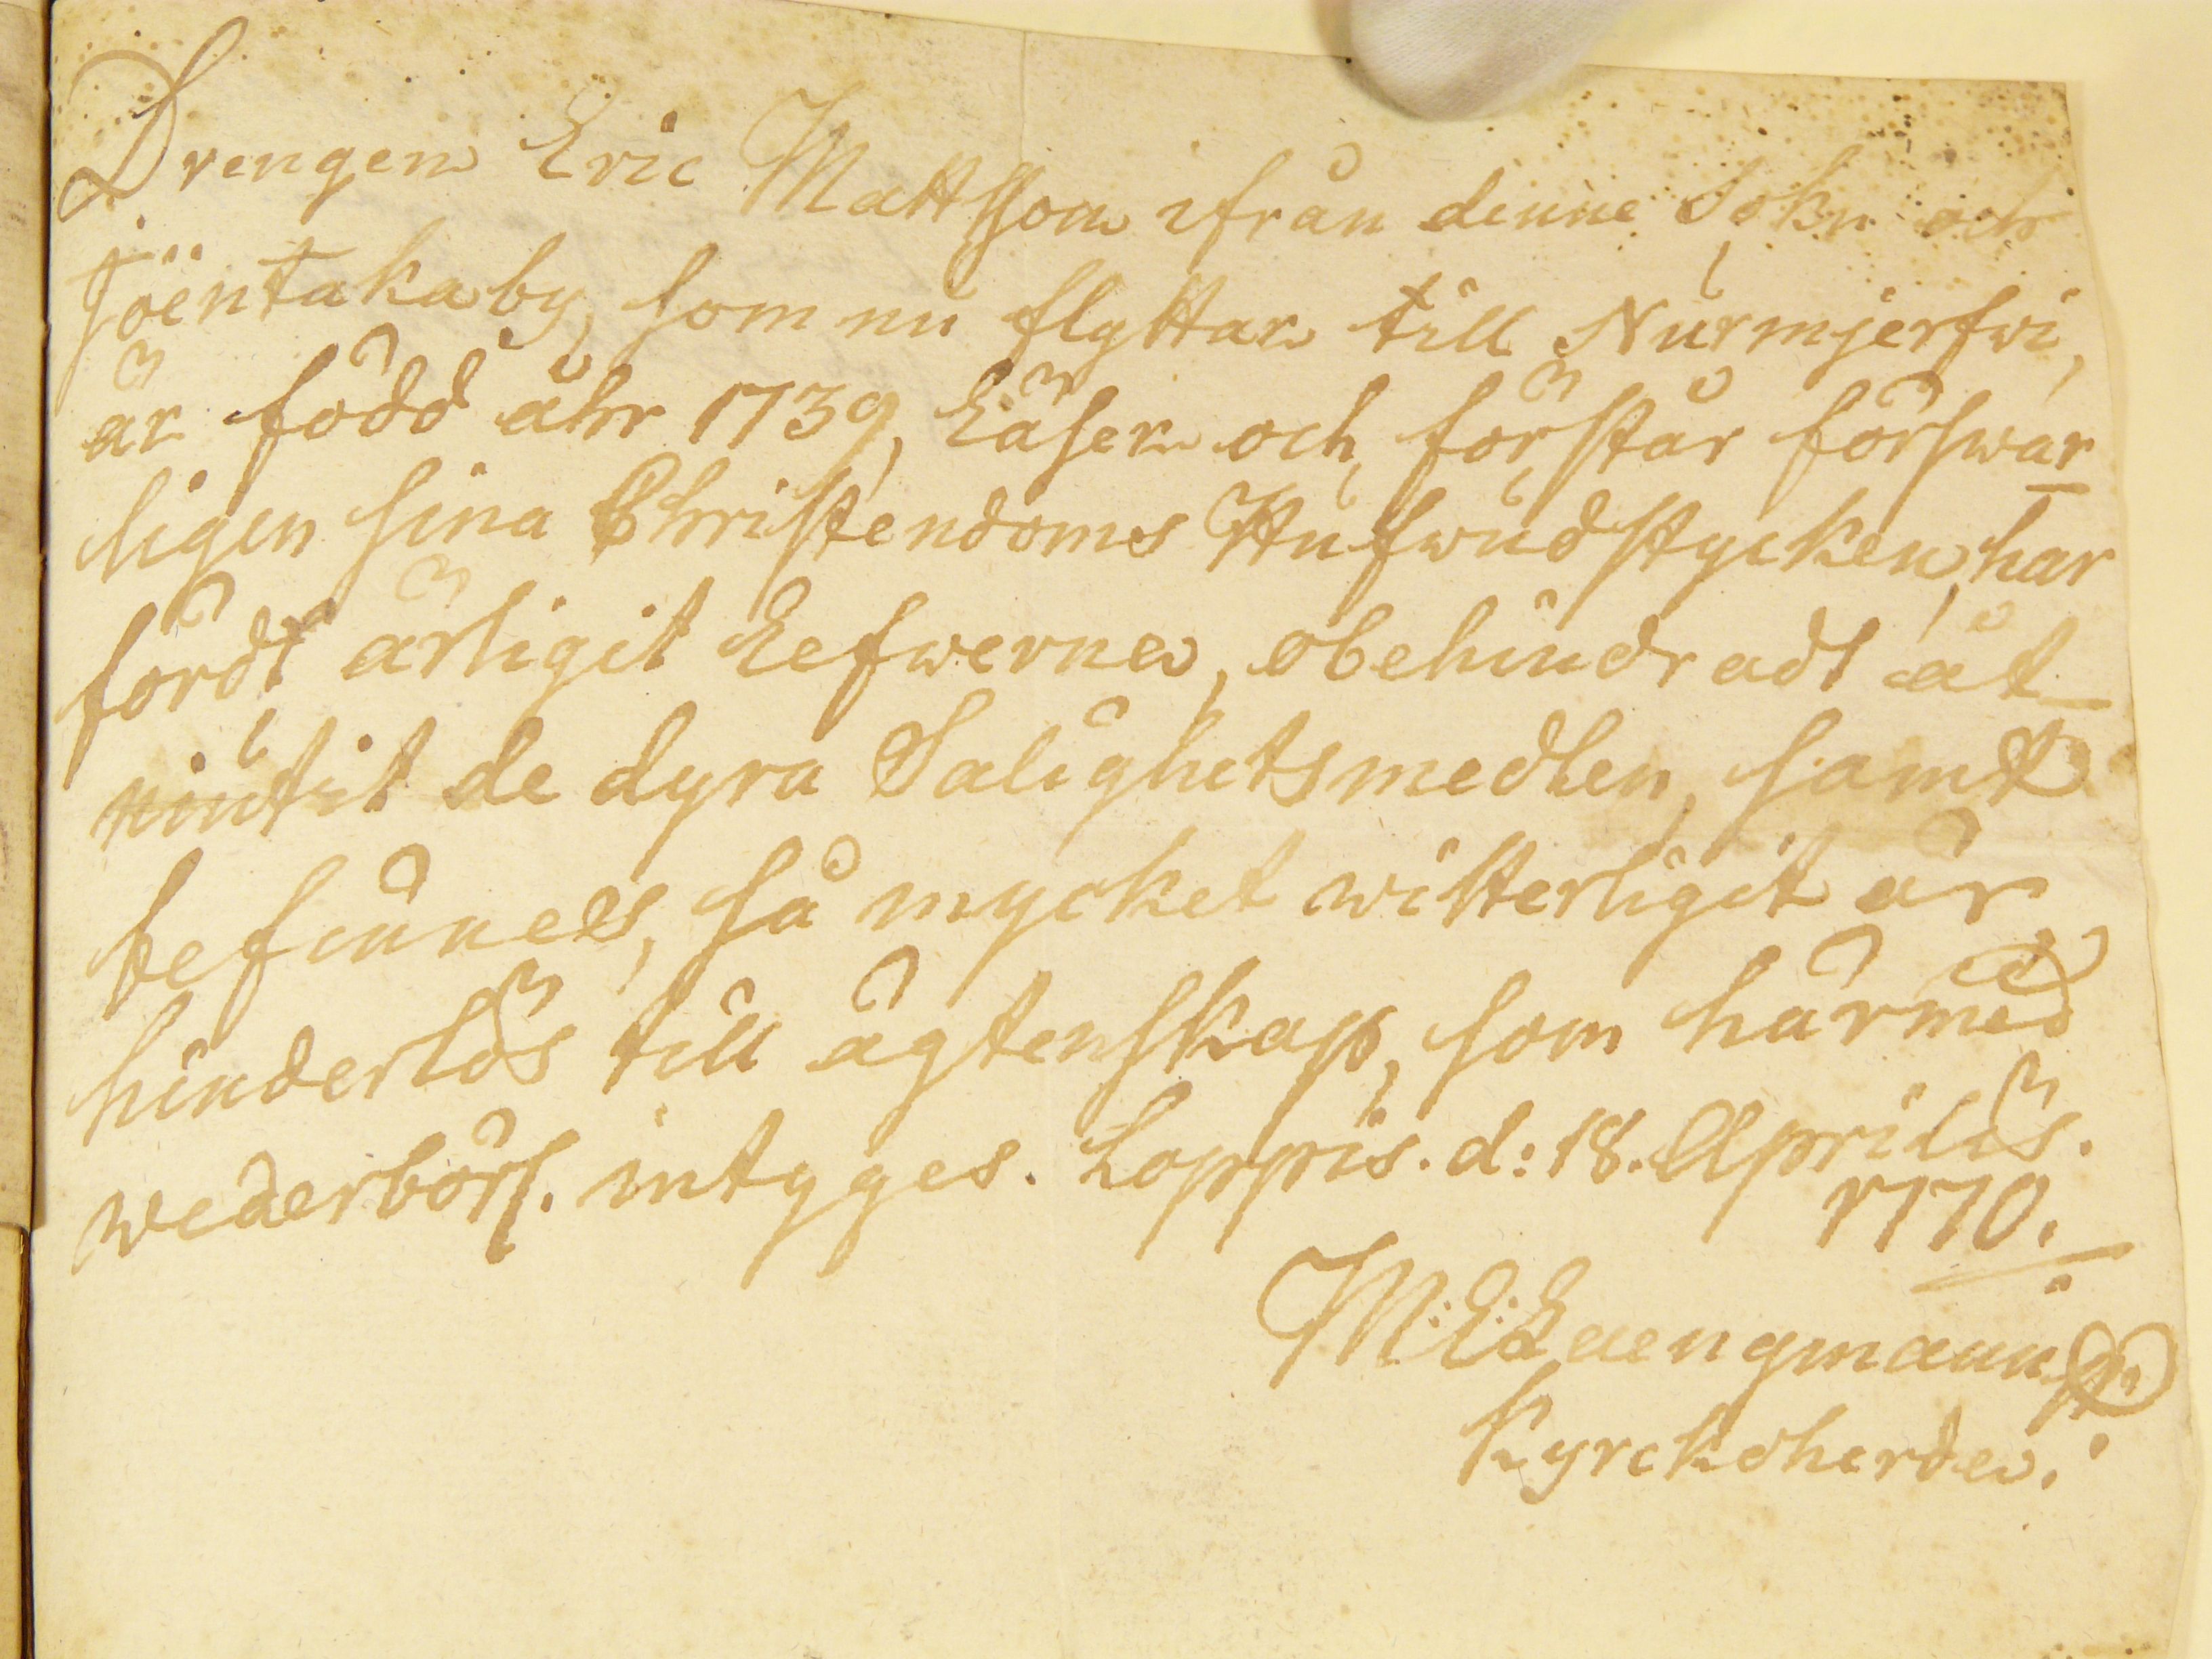 Drengen Eric Mattsson ifrån denne Sokn och
Jöentaka by, som nu flyttar till Nurmjerfwi,
är född åhr 1739, läser och förstår förswar
ligen sina Christendoms Hufwudstycken, har
fördt ärligit Lefwerne, obehindradt åt
niutit de dyra Salighetsmedlen, samt
befinnes, så mycket witterligit är
hinderlös till ägtenskap, som härmed
wederbörl. intyges. Loppis. d: 18. Aprilis.
1770.
M: E: Laengmann
Kyrckoherde.